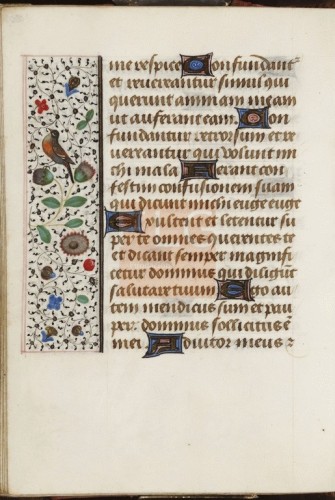 me respice Confundant
et revereantur simul qui
querunt animam meam
ut auferant eam. Con
fundantur retrorsum et re
vereantur qui volunt mi
chi mala Ferant con
festim confusionem suam
qui dicunt michi euge euge
Exultent et letentur su
per te omnes querentes te
et dicant semper magnifi
cetur dominus qui diligut
salutare tuum Ego au
tem mendicus sum et pau
per. dominus sollicitus e
mei Adiutor meus z